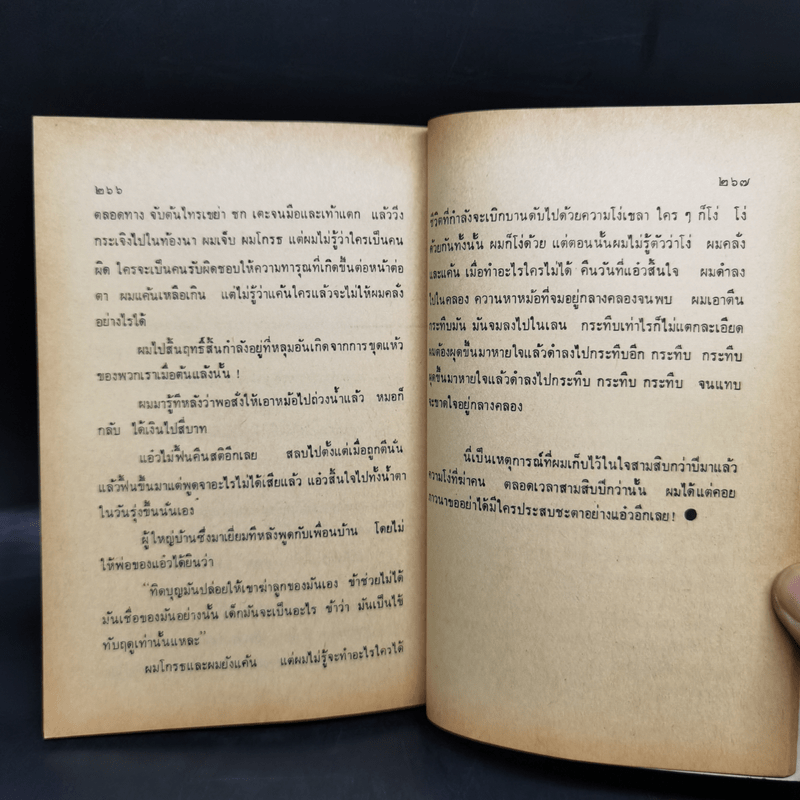 ๒๖๖
ตลอดทาง จับต้นไทรเขย่า ชก เตะจนมือและเท้าแตก แล้ววิ่ง
กระเจิงไปในท้องนา ผมเจ็บ ผมโกรธ แต่ผมไม่รู้ว่าใครเป็นคน
ผิด ใครจะเป็นคนรับผิดชอบให้ความทารุณที่เกิดขึ้นต่อหน้าต่อ
ตา ผมแค้นเหลือเกิน แต่ไม่รู้ว่าแค้นใครแล้วจะไม่ให้ผมคลั่ง
อย่างไรได้
ผมไปสิ้นฤทธิ์สิ้นกำลังอยู่ที่หลุมอันเกิดจากการขุดแห้ว
ของพวกเราเมื่อต้นแล้งนั้น !
ผมมารู้ทีหลังว่าพอสั่งให้เอาหม้อไปถ่วงน้ำแล้ว หมอก็
กลับ ได้เงินไปสี่บาท
แอ๋วไม่ฟื้นคืนสติอีกเลย สลบไปตั้งแต่เมื่อถูกตีนั่น
แล้วฟื้นขึ้นมาแต่พูดจาอะไรไม่ได้เสียแล้ว แอ๋วสิ้นใจไปทั้งน้ำตา
ในวันรุ่งขึ้นนั่นเอง
ผู้ใหญ่บ้านซึ่งมาเยี่ยมทีหลังพูดกับเพื่อนบ้าน โดยไม่
ให้พ่อของแอ๋วได้ยินว่า
"ทิดบุญมันปล่อยให้เขาฆ่าลูกของมันเอง ข้าช่วยไม่ได้
มันเชื่อของมันอย่างนั้น เด็กมันจะเป็นอะไร ข้าว่า มันเป็นไข้
ทับฤดูเท่านั้นแหละ"
ผมโกรธและผมยังแค้น แต่ผมไม่รู้จะทำอะไรใครได้
๒๖๗
ชีวิตที่กำลังจะเบิกบานดับไปด้วยความโง่เขลา ใคร ๆ ก็โง่ โง่
ด้วยกันทั้งนั้น ผมก็โง่ด้วย แต่ตอนนั้นผมไม่รู้ตัวว่าโง่ ผมคลั่ง
และแค้น เมื่อทำอะไรใครไม่ได้ คืนวันที่แอ๋วสิ้นใจ ผมดำลง
ไปในคลอง ควานหาหม้อที่จมอยู่กลางคลองจนพบ ผมเอาตีน
กระทืบมัน มันจมลงไปในเลน กระทืบเท่าไรก็ไม่แตกละเอียด
ผมต้องผุดขึ้นมาหายใจแล้วดำลงไปกระทืบอีก กระทืบ กระทืบ
ผุดขึ้นมาหายใจแล้วดำลงไปกระทืบ กระทืบ กระทืบ จนแทบ
จะขาดใจอยู่กลางคลอง
นี่เป็นเหตุการณ์ที่ผมเก็บไว้ในใจสามสิบกว่าปีมาแล้ว
ความโง่ที่ฆ่าคน ตลอดเวลาสามสิบปีกว่านั้น ผมได้แต่คอย
ภาวนาขออย่าได้มีใครประสบชะตาอย่างแอ๋วอีกเลย! ●